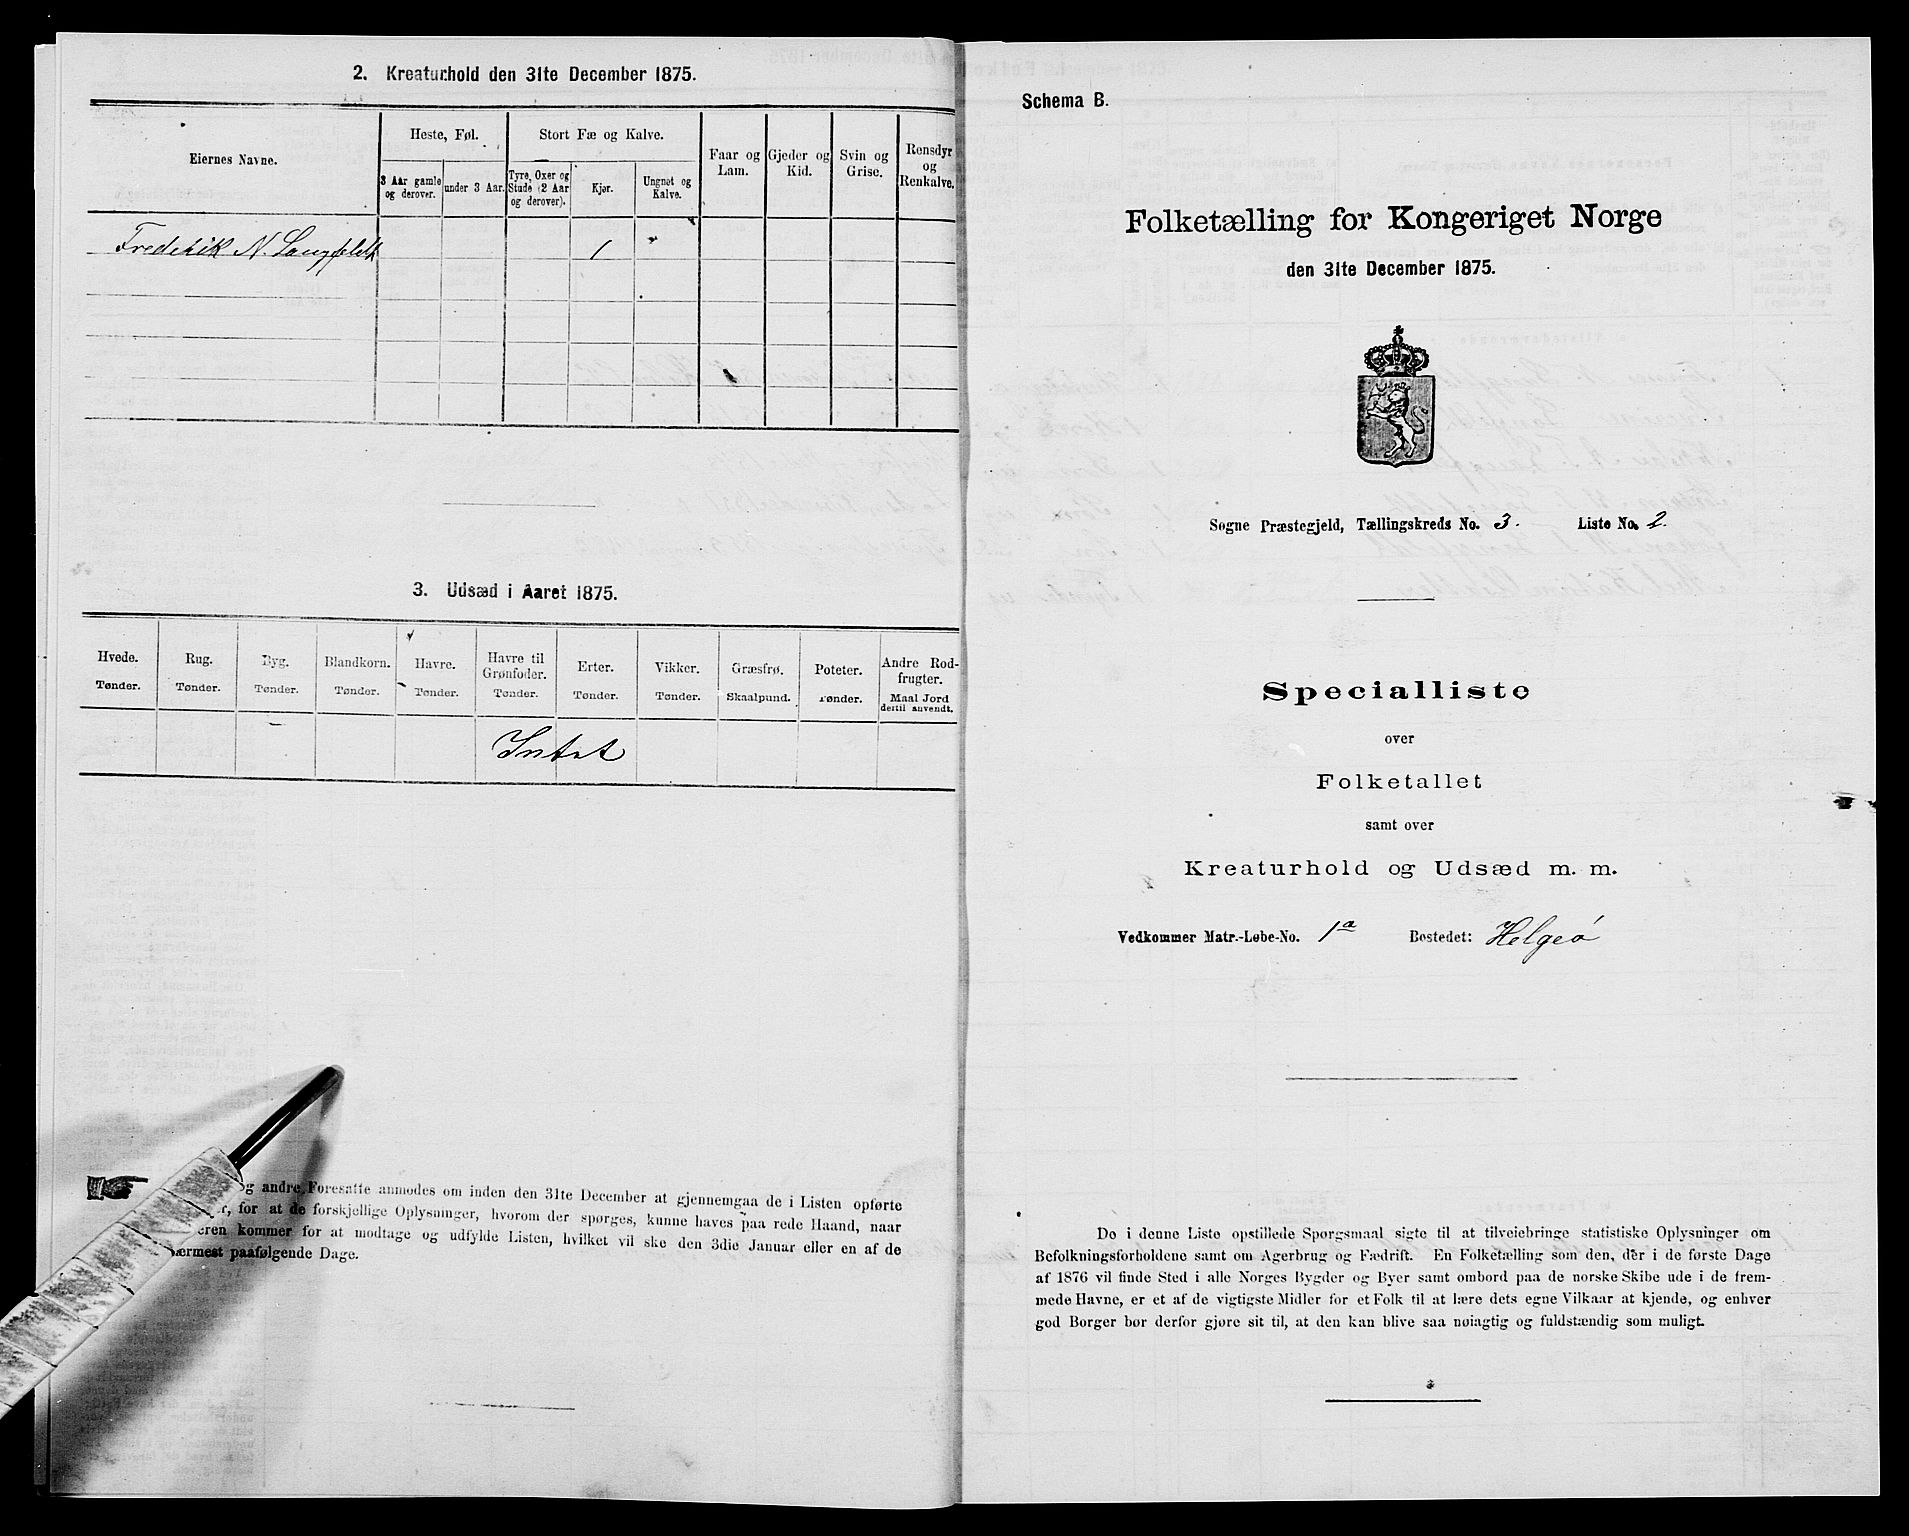 2. Kreaturhold den 31te December 1875.
Eiernes Navne.
Heste, Føl.
Stort Fæ og Kalve.
Faar og Lam.
Gjeder og Kid.
Svin og Grise.
Rensdyr og Renkalve.
3 Aar gamle og derover.
under 3 Aar.
Tyre, Oxer og Stude (2 Aar og derover).
Kjør.
Ungnøt og Kalve.
Frederik N. Langfeldt 1
3. Udsæd i Aaret 1875.
Hvede. Rug. Byg. Blandkorn. Havre. Havre til Grønfoder. Erter. Vikker. Græsfrø. Poteter. Andre Rodfrugter.
Tønder. Tønder. Tønder. Tønder. Tønder. Tønder. Tønder. Tønder. Skaalpund. Tønder. Maal Jord dertil anvendt.
Intet
og andre Foresatte anmodes om inden den 31te December at gjennemgaa de i Listen opførte
for at de forskjellige Oplysninger, hvorom der spørges, kunne haves paa rede Haand, naar
kommer for at modtage og udfylde Listen, hvilket vil ske den 3die Januar eller en af de
nærmest paafølgende Dage.
Schema B.
Folketælling for Kongeriget Norge
den 31te December 1875.
Søgne Præstegjeld, Tællingskreds No. 3. Liste No. 2.
Specialliste
over
Folketallet
samt over
Kreaturhold og Udsæd m. m.
Vedkommer Matr.-Løbe-No. 1a Bostedet: Helgeö
De i denne Liste opstillede Spørgsmaal sigte til at tilveiebringe statistiske Oplysninger om
Befolkningsforholdene samt om Agerbrug og Fædrift. En Folketælling som den, der i de første Dage
af 1876 vil finde Sted i alle Norges Bygder og Byer samt ombord paa de norske Skibe ude i de frem-
mede Havne, er et af de vigtigste Midler for et Folk til at lære dets egne Vilkaar at kjende, og enhver
god Borger bør derfor gjøre sit til, at den kan blive saa nøiagtig og fuldstændig som muligt.